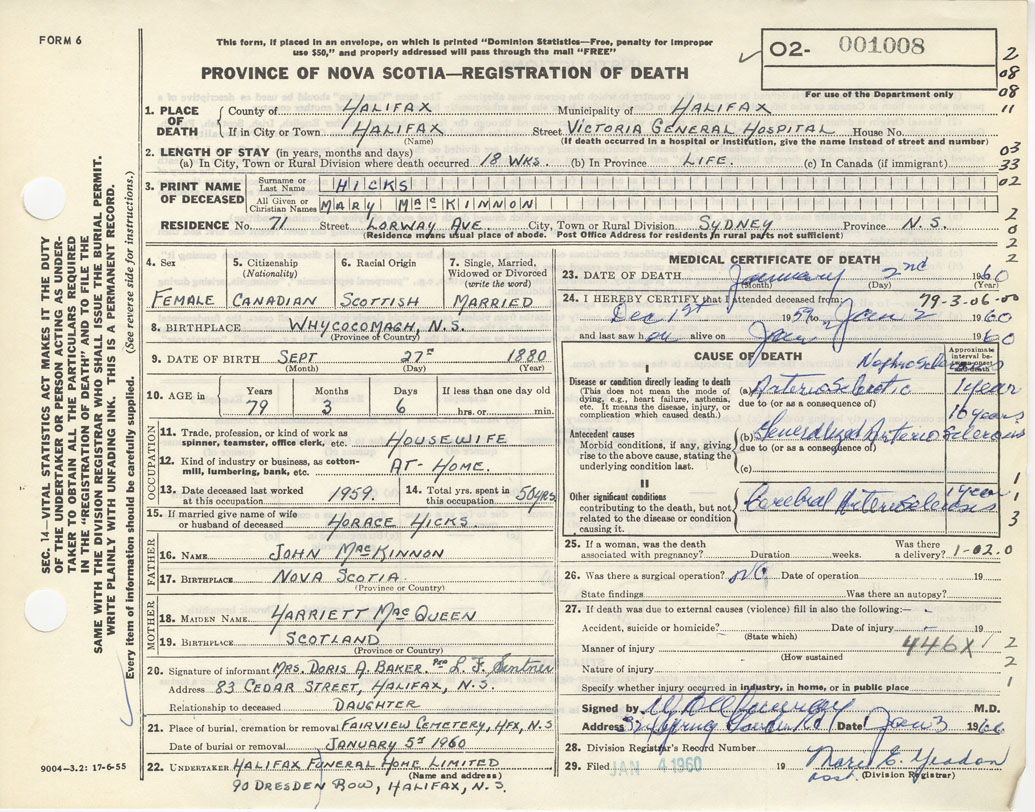 FORM 6
This form, if placed in an envelope, on which is printed "Dominion Statistics—Free, penalty for improper
use $50," and properly addressed will pass through the mail "FREE"
PROVINCE OF NOVA SCOTIA—REGISTRATION OF DEATH
O2- 001008
For use of the Department only
2
08
08
11
03
33
02
2
0
2
2
SEC. 14—VITAL STATISTICS ACT MAKES IT THE DUTY
OF THE UNDERTAKER OR PERSON ACTING AS UNDER-
TAKER TO OBTAIN ALL THE PARTICULARS REQUIRED
IN THE "REGISTRATION OF DEATH" AND TO FILE THE
SAME WITH THE DIVISION REGISTRAR WHO SHALL ISSUE THE BURIAL PERMIT.
WRITE PLAINLY WITH UNFADING INK. THIS IS A PERMANENT RECORD.
Every item of information should be carefully supplied. (See reverse side for instructions.)
1. PLACE OF DEATH
County of HALIFAX Municipality of HALIFAX
If in City or Town HALIFAX Street VICTORIA GENERAL HOSPITAL House No.
(Name) (If death occurred in a hospital or institution, give the name instead of street and number)
2. LENGTH OF STAY (in years, months and days)
(a) In City, Town or Rural Division where death occurred 18 WKS. (b) In Province LIFE. (c) In Canada (if immigrant)
3. PRINT NAME OF DECEASED
Surname or Last Name HICKS
All Given or Christian Names MARY MACKINNON
RESIDENCE No. 71 Street LORWAY AVE. City, Town or Rural Division SYDNEY Province N.S.
(Residence means usual place of abode. Post Office Address for residents in rural parts not sufficient)
4. Sex
FEMALE
5. Citizenship (Nationality)
CANADIAN
6. Racial Origin
SCOTTISH
7. Single, Married, Widowed or Divorced (write the word)
MARRIED
8. BIRTHPLACE WHYCOCOMAGH, N.S.
(Province or Country)
9. DATE OF BIRTH SEPT 27TH 1880
(Month) (Day) (Year)
10. AGE in
Years Months Days If less than one day old
79 3 6 hrs. or min.
OCCUPATION
11. Trade, profession, or kind of work as spinner, teamster, office clerk, etc. HOUSEWIFE
12. Kind of industry or business, as cotton-mill, lumbering, bank, etc. AT-HOME.
13. Date deceased last worked at this occupation 1959.
14. Total yrs. spent in this occupation 50 YRS
15. If married give name of wife or husband of deceased HORACE HICKS.
FATHER
16. NAME JOHN MACKINNON
17. BIRTHPLACE NOVA SCOTIA
(Province or Country)
MOTHER
18. MAIDEN NAME HARRIETT MACQUEEN
19. BIRTHPLACE SCOTLAND
(Province or Country)
20. Signature of informant MRS. DORIS A. BAKER. Per L. F.
Address 83 CEDAR STREET, HALIFAX, N.S.
Relationship to deceased DAUGHTER
21. Place of burial, cremation or removal FAIRVIEW CEMETERY, HFX, N.S
Date of burial or removal JANUARY 5TH 1960
22. UNDERTAKER HALIFAX FUNERAL HOME LIMITED
(Name and address)
90 DRESDEN ROW, HALIFAX, N.S.
9004-3.2: 17-6-55
MEDICAL CERTIFICATE OF DEATH
23. DATE OF DEATH January 2nd 1960
(Month) (Day) (Year)
24. I HEREBY CERTIFY that I attended deceased from: 79-3-06-00
Dec 1st 1959 to Jan 2 1960
and last saw h alive on Jan 2 1960
CAUSE OF DEATH
Approximate interval between onset and death
I
Disease or condition directly leading to death
(This does not mean the mode of dying, e.g., heart failure, asthenia, etc. It means the disease, injury, or complication which caused death.)
(a) Arteriosclerotic Nephrosclerosis 1 year
due to (or as a consequence of)
10 years
Antecedent causes
Morbid conditions, if any, giving rise to the above cause, stating the underlying condition last.
(b) Generalized Arteriosclerosis
due to (or as a consequence of)
(c)
II
Other significant conditions
contributing to the death, but not related to the disease or condition causing it.
Cerebral Arteriosclerosis 1 year
1
1
3
25. If a woman, was the death associated with pregnancy? Duration weeks. Was there a delivery? 1-02.0
26. Was there a surgical operation? No Date of operation 19
State findings Was there an autopsy?
27. If death was due to external causes (violence) fill in also the following:—
Accident, suicide or homicide? Date of injury 19
(State which)
Manner of injury 446X
(How sustained)
Nature of injury
Specify whether injury occurred in industry, in home, or in public place
1 2
2
1
Signed by M.D.
Address Spring Garden Rd Date Jan 3 1960
28. Division Registrar's Record Number
29. Filed JAN 4 1960 19 Marie E.
(Division Registrar)